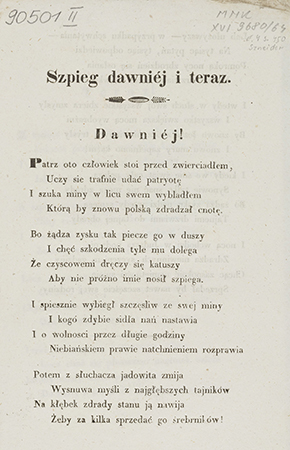 90501 II
MMK
XVI 9680/64
Szpieg dawniéj i teraz.
Dawniéj!
Patrz oto człowiek stoi przed zwierciadłem,
Uczy sie trafnie udać patryotę
I szuka miny w licu swem wybladłem
Którą by znowu polską zdradzał cnotę.
Bo żądza zysku tak piecze go w duszy
I chęć szkodzenia tyle mu dolega
Że czyscowemi dręczy się katuszy
Aby nie próżno imie nosił szpiega.
I spiesznie wybiegł szczęsliw ze swej miny
I kogó zdybie sidła nań nastawia
I o wolnosci przez długie godziny
Niebiańskiem prawie natchnieniem rozprawia
Potem z słuchacza jadowita zmija
Wysnuwa myśli z najgłębszych tajników
Na kłębek zdrady stanu ją nawija
Żeby za kilka sprzedać go śrebrników!